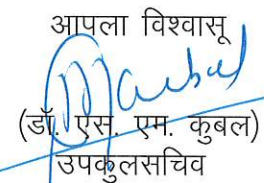 आपला विश्वासू
(डॉ. एस. एम. कुबल)
उपकुलसचिव